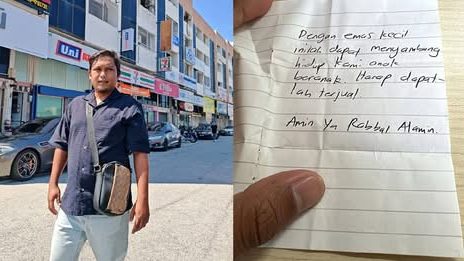 Uni
Dengan emas kecil
inilah dapat menyambung
hidup kami anak
beranak. Harap dapat-
lah terjual.
Amin Ya Rabbal Alamin.